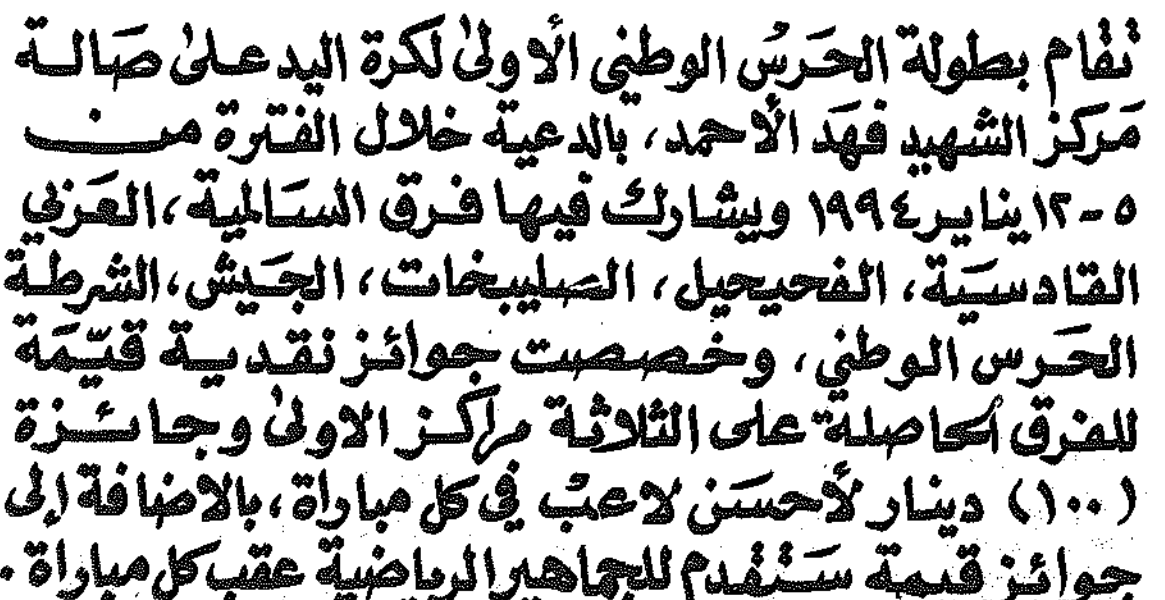 تقام بطولة الحَرسُ الوطني الأولىٰ لكرة اليد علىٰ صَالة
مَركز الشهيد فهَد الأحمد، بالدعية خلال الفترة من
٥-١٢ يناير ١٩٩٤ ويشارك فيها فرق السَالمية، العَربي
القادسيَة، الفحيحيل، الصليبخات، الجَيش، الشرطة
الحَرس الوطني، وخصصت جوائز نقدية قيّمَة
للفرق الحاصلة على الثلاثة مراكز الاولىٰ وجائزة
(١٠٠) دينار لأحسَن لاعبْ في كل مباراة، بالاضافة إلى
جوائز قيمة سَتُقدم للجماهير الرياضية عقب كل مباراة.